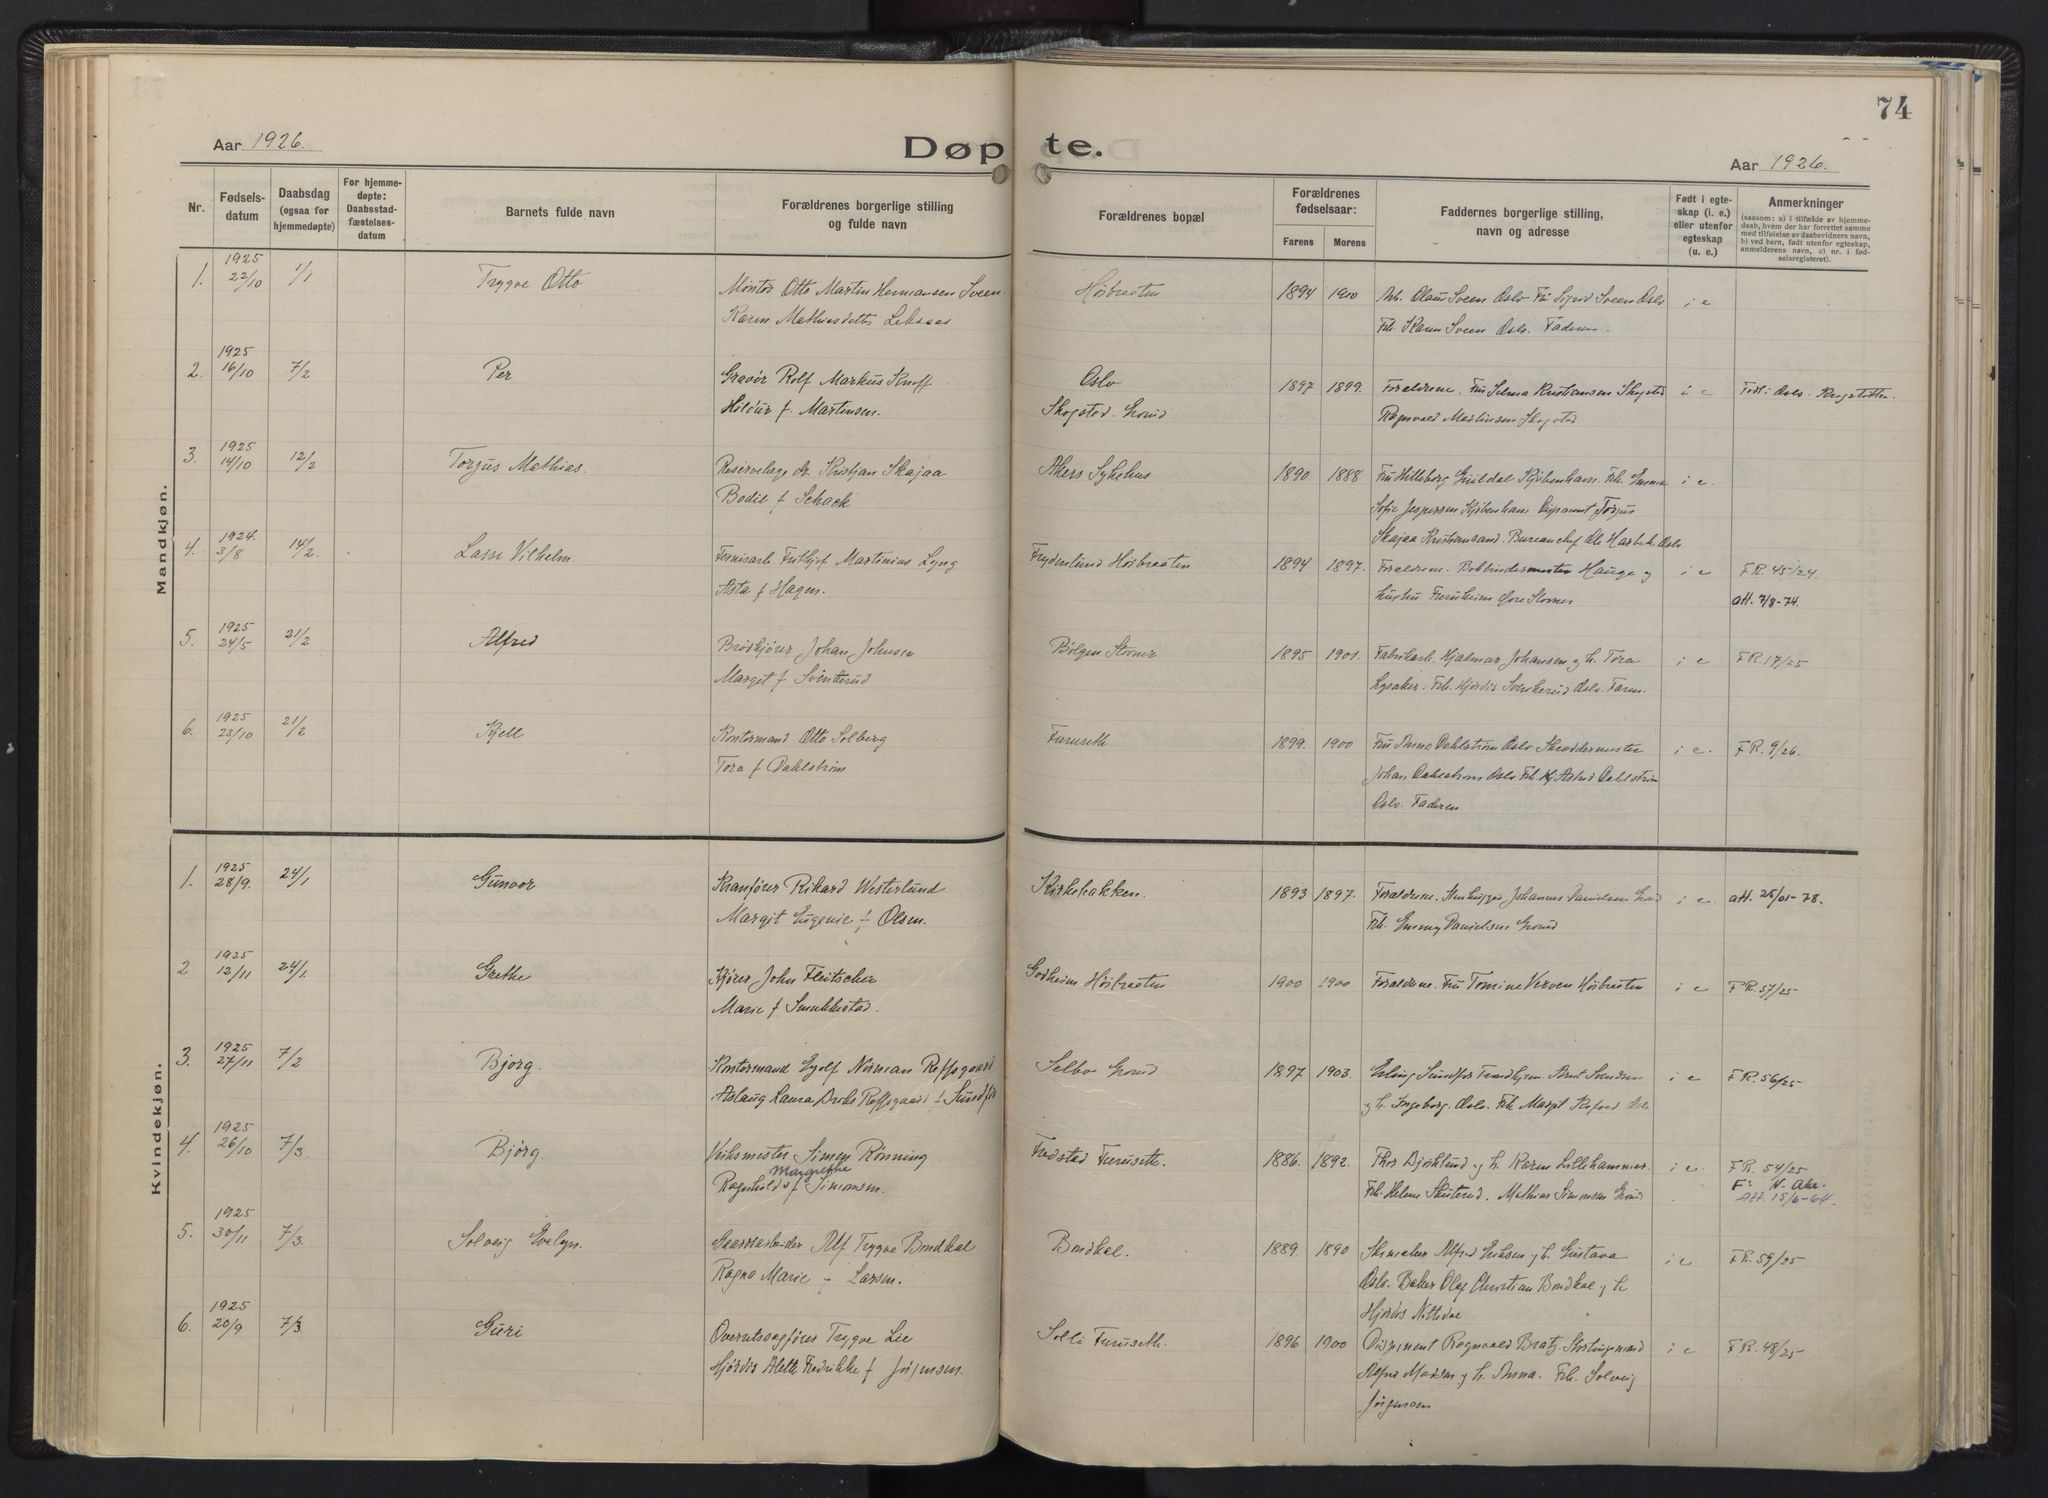 74
Aar 1926.
Døpte.
Aar 1926.
Nr.
Fødsels-
datum
Daabsdag
(ogsaa for
hjemmedøpte)
For hjemme-
døpte:
Daabsstad-
fæstelses-
datum
Barnets fulde navn
Forældrenes borgerlige stilling
og fulde navn
Forældrenes bopæl
Forældrenes
fødselsaar:
Farens
Morens
Faddernes borgerlige stilling,
navn og adresse
Født i egte-
skap (i. e.)
eller utenfor
egteskap
(u. e.)
Anmerkninger
(saasom: a) i tilfælde av hjemme-
daab, hvem der har forrettet samme
med tilføielse av daabsvidners navn,
b) ved barn, født utenfor egteskap,
anmelderens navn, c) nr. i fød-
selsregisteret).
Mandkjøn.
1. 1925 22/10 1/1 Trygve Otto
Montør Otto Martin Hermansen Sveen.
Karen Mathiasdatter
Høibraaten 1894 1900
Arb. Olaus Sveen Oslo Fru Sigrid Sveen Oslo
Frk. Karen Sveen Oslo. Faderen.
i e
2. 1925 16/10 7/2 Per
Gravør Rolf Markus Knoff
Hildur f. Martinsen.
Oslo
Skogstad. Grorud
1897 1899.
Forældrene. Fru Selma Kristiansen Skogstad
Ragnvald Martinsen Skogstad
i e Født i Oslo.
3. 1925 14/10 12/2 Torgus Mathias.
Reservelæge dr. Kristjan Skajaa
Bodil f Schack
Akers Sykehus 1890 1888
Fru Kjøbenhavn. Frk. Emma
Sofie Jespersen Kjøbenhavn Disponent Torgus
Skajaa Kristiansand. Bureauchef Ole Oslo
i e.
4. 1924. 3/8 14/2. Lasse Vilhelm.
Fernisarb. Frithjof Martinius Lyng
Asta f Hagen.
Frydenlund Høibraaten 1894 1897.
Forældrene. Bokbindermester Hauge og
hustru Furuheim Øvre Stovner
i e F R. 45/24.
att. 7/8-74.
5. 1925 24/5 21/2 Alfred
Brødkjører Johan Johnsen
Marget f
Bølgen Stovner 1895 1901.
Fabrikarb. Hjalmar Johansen og h. Tora
Lysaker. Frk. Hjørdis Oslo. Faren.
i e F R. 17/25
6. 1925 23/10 21/2 Kjell
Kontormand Otto Solberg
Tora f Dahlstrøm
Furuseth 1899. 1900
Fru Anna Dahlstrøm Oslo Skræddermester
Johan Dahlstrøm Oslo Frk Astrid Dahlstrøm
Oslo. Faderen
i e. F R. 9/26.
Kvindekjøn.
1. 1925 28/9. 24/1 Gunvor
Kranfører Rikard Westerlund
Margit Eugenie f Olsen.
Kirkebakken. 1893 1897.
Forældrene. Stenhugger Johannes Danielsen Grorud
Frk. Emmy Danielsen Grorud
i e. att. 25/01-78.
2 1925 12/11 24/1 Grethe
Kjører John Fleitscher
Marie f Smukkestad.
Godheim Høibraaten 1900 1900
Forældrene. Fru Tomine Verven Høibraaten
i e F R. 57/25
3. 1925 27/11 7/2 Bjørg.
Kontormand Eyolf Norman Reffsgaard
Aslaug Laura Reffsgaard f Sundfør
Selbo Grorud 1897 1903.
Erling Sundfør Trondhjem
og h. Ingeborg. Oslo. Frk Margit
i e F R. 56/25
4. 1925 26/10 7/3. Bjørg.
Verksmester Simen Rønning
Margrethe
Ragnhild f Simonsen.
Fredstad Furuseth. 1886. 1892.
Thor Bjørklund og h. Karen Lillehammer.
Frk. Helene Mathias Simonsen Grorud
i e. F R. 54/25
F: N. Aker
Att. 15/6-64.
5. 1925 30/11 7/3. Solveig Evelyn.
Gaardsarbeider Alf Trygve Bondkal
Ragna Marie f Larsen.
Bondkal. 1889. 1890
Skomaker Alfred Eriksen og h. Gustava
Oslo. Baker Olaf Christian Bondkal og h
Hjørdis Nittedal
i e F R. 59/25
6. 1925 20/9 7/3. Guri
Overretssagfører Trygve Lie
Hjørdis Alette Fredrikke f Jørgensen.
Solli Furuseth. 1896 1900
Disponent Ragnvald Bratz. Stortingsmand
Alfred Madsen og h. Anna. Frk. Solveig
Jørgensen
i e F R. 48/25